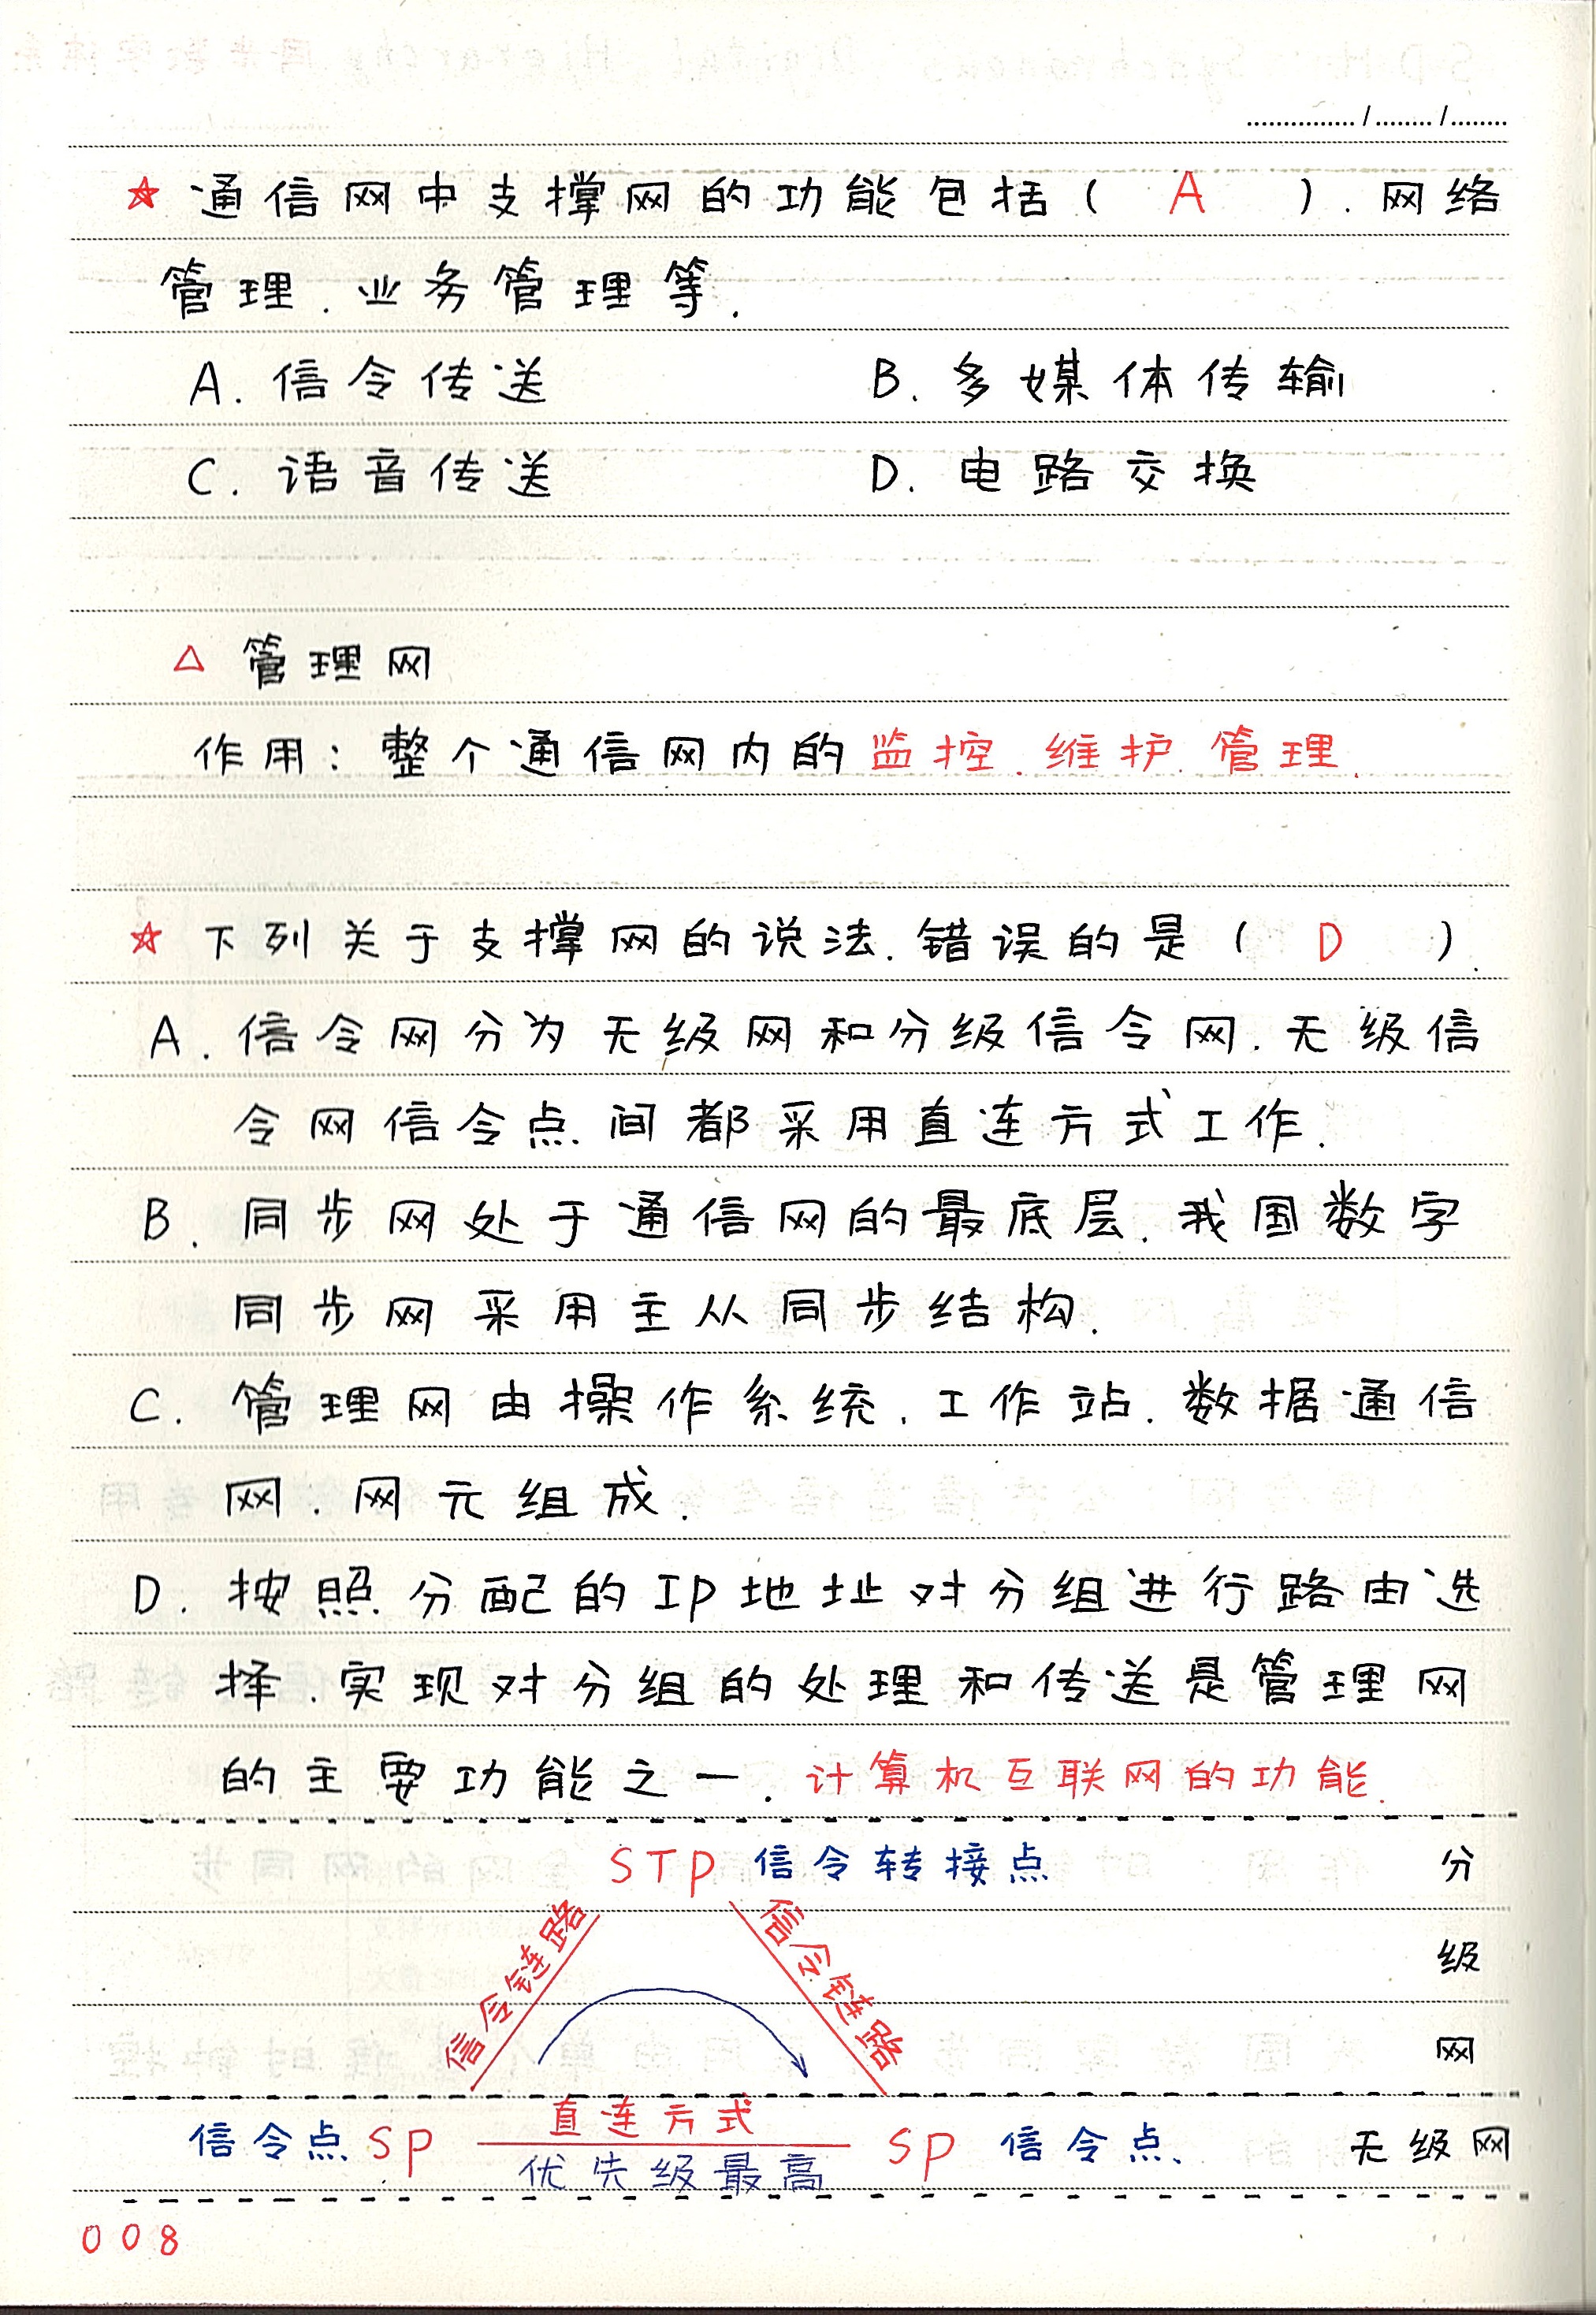 ☆ 通信网中支撑网的功能包括( A ).网络
管理.业务管理等.
A.信令传送 B.多媒体传输
C.语音传送 D.电路交换
△ 管理网
作用:整个通信网内的监控.维护.管理.
☆ 下列关于支撑网的说法.错误的是( D ).
A.信令网分为无级网和分级信令网.无级信
令网信令点间都采用直连方式工作.
B.同步网处于通信网的最底层.我国数字
同步网采用主从同步结构.
C.管理网由操作系统.工作站.数据通信
网.网元组成.
D.按照分配的IP地址对分组进行路由选
择.实现对分组的处理和传送是管理网
的主要功能之一.计算机互联网的功能.
STP 信令转接点 分
信令链路 信令链路 级
网
直连方式
信令点 SP SP 信令点、 无级网
优先级最高
008